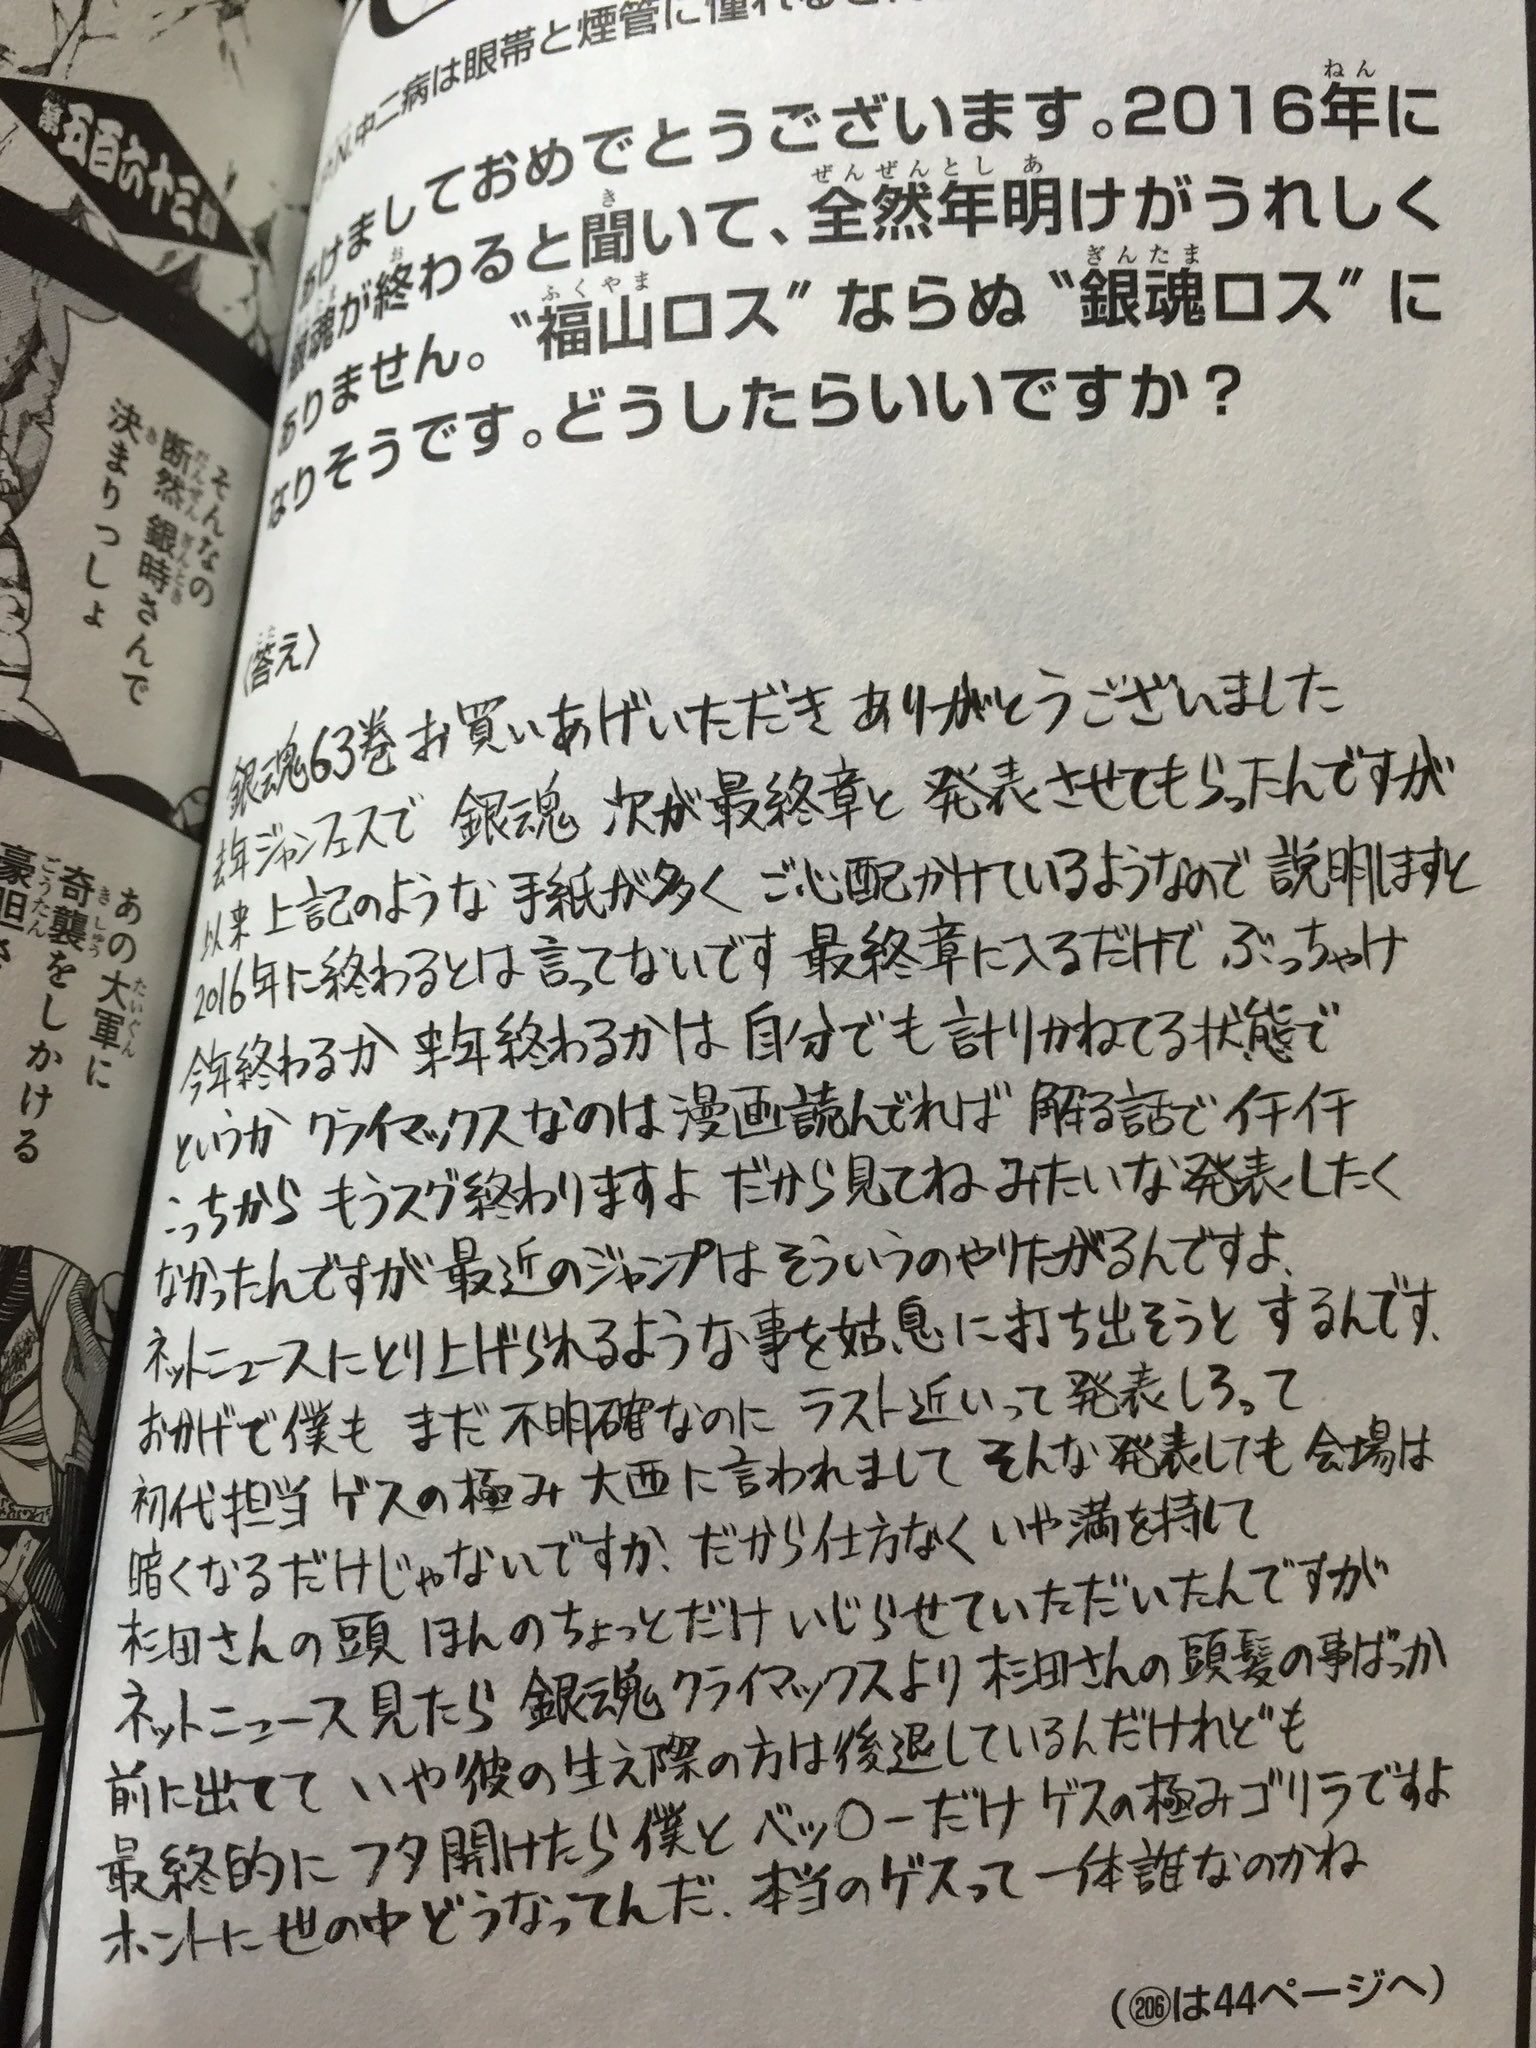 中二病は眼帯と煙管に憧れる
あけましておめでとうございます。2016年に
銀魂が終わると聞いて、全然年明けがうれしく
ありません。“福山ロス”ならぬ“銀魂ロス”に
なりそうです。どうしたらいいですか？
〈答え〉
銀魂63巻お買いあげいただきありがとうございました
去年ジャンフェスで 銀魂 次が最終章と 発表させてもらったんですが
以来 上記のような 手紙が多く ご心配かけているようなので 説明しますと
2016年に終わるとは 言ってないです 最終章に入るだけで ぶっちゃけ
今年終わるか 来年終わるかは 自分でも 計りかねてる状態で
というか クライマックスなのは漫画読んでれば 解る話で イチイチ
こっちから もうスグ終わりますよ だから見てね みたいな発表したく
なかったんですが 最近のジャンプは そういうのやりたがるんですよ、
ネットニュースにとり上げられるような事を姑息に打ち出そうと するんです、
おかげで僕も まだ不明確なのに ラスト近いって発表しろって
初代担当 ゲスの極み 大西に言われまして そんな発表しても 会場は
暗くなるだけじゃないですか、だから仕方なく いや満を持して
杉田さんの頭 ほんのちょっとだけ いじらせていただいたんですが
ネットニュース見たら 銀魂クライマックスより 杉田さんの頭髪の事ばっか
前に出てて いや彼の生え際の方は後退しているんだけれども
最終的に フタ開けたら僕と ベッ〇ーだけ ゲスの極みゴリラですよ
ホントに世の中どうなってんだ、本当のゲスって一体誰なのかね
(206は44ページへ)
第五百六十三
そんなの
断然銀時さんで
決まりっしょ
あの大軍に
奇襲をしかける
豪胆さ